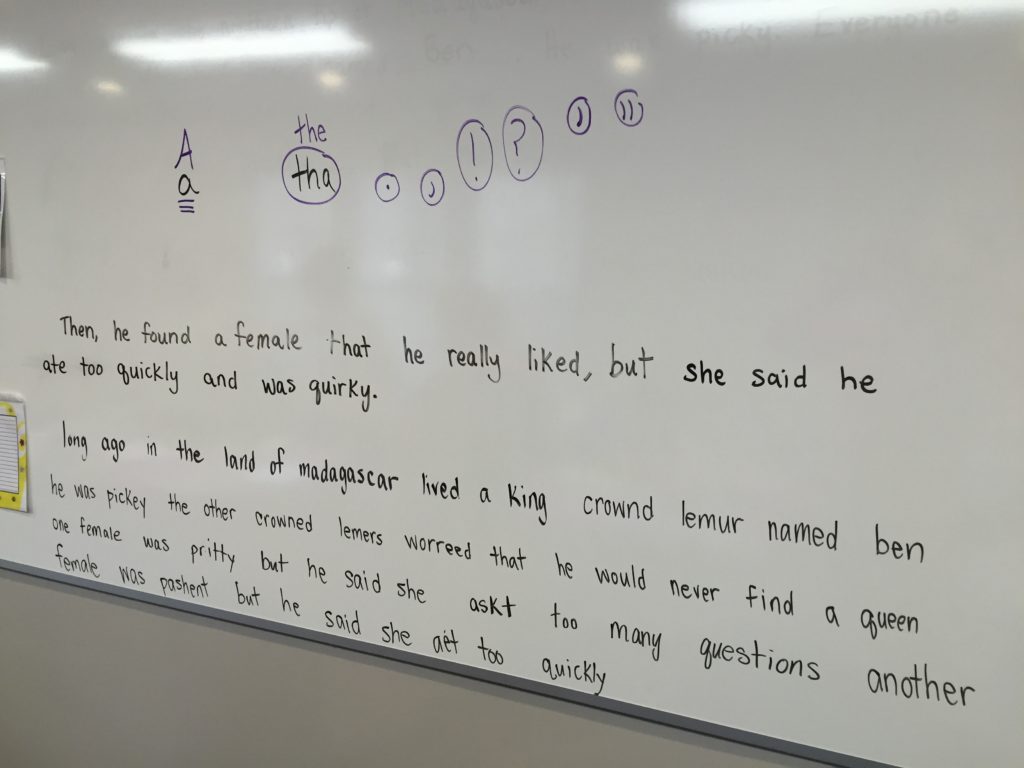 Ben He picky. Everyone
the
A
a
tha . , ! ? , ,,
Then, he found a female that he really liked, but she said he
ate too quickly and was quirky.
long ago in the land of madagascar lived a king crownd lemur named ben
he was pickey the other crowned lemers worreed that he would never find a queen
one female was pritty but he said she askt too many questions another
female was pashent but he said she aet too quickly